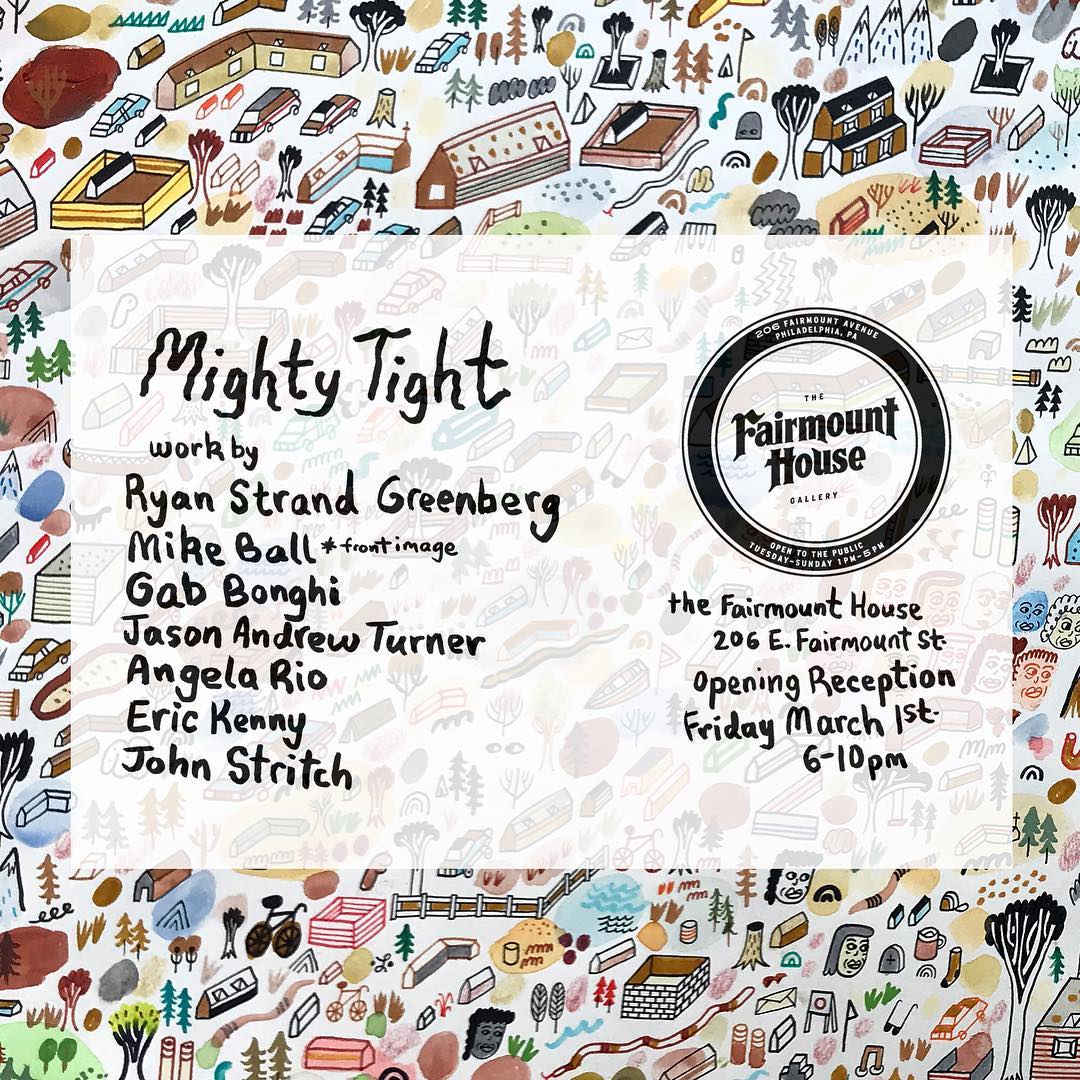 Mighty Tight
work by
Ryan Strand Greenberg
Mike Ball *front image
Gab Bonghi
Jason Andrew Turner
Angela Rio
Eric Kenny
John Stritch
206 FAIRMOUNT AVENUE
PHILADELPHIA, PA
THE
Fairmount
House
GALLERY
OPEN TO THE PUBLIC
TUESDAY-SUNDAY 1PM-5PM
the Fairmount House
206 E. Fairmount St.
Opening Reception
Friday March 1st.
6-10pm